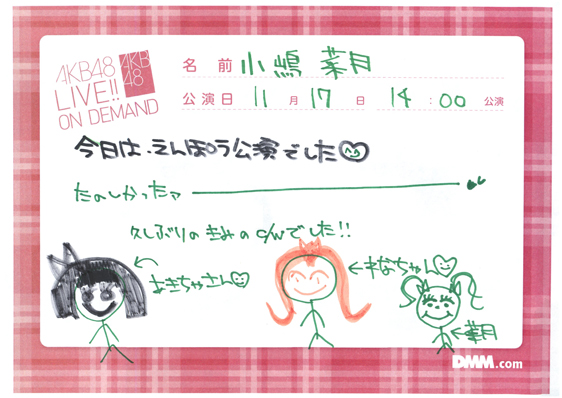 AKB48
LIVE!!
ON DEMAND
AKB
48
名前 小嶋 菜月
公演日 11月17日 14:00公演
今日は、えんぽう公演でした♡
たのしかったァ ―――――
久しぶりのきみのc/wでした!!
まきちゃさん♡
←ねなちゃん♡
←菜月
DMM.com